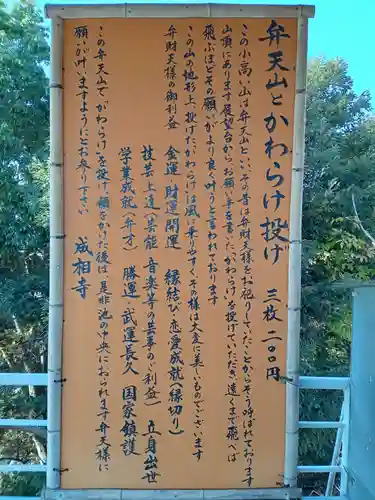 弁天山とかわらけ投げ 三枚 二〇〇円
この小高い山は弁天山といい、その昔は弁天様をお祀りしていたことからそう呼ばれております
山頂にあります展望台からお願い事を書いたかわらけを投げていただき遠くまで飛べば
飛ぶほどその願いがより良く叶うと言われております
この山の地形上、投げたかわらけは風に乗りやすく、その様は大変に美しいものでございます
弁財天様の御利益
金運 財運開運 縁結び 恋愛成就(縁切り)
技芸上達(芸能 音楽等の芸事のご利益) 立身出世
学業成就(弁才) 勝運 武運長久 国家鎮護
この弁天山でかわらけを投げ、願をかけた後は是非池の中央におられます弁天様に
願いが叶いますようにとお参り下さい
成相寺